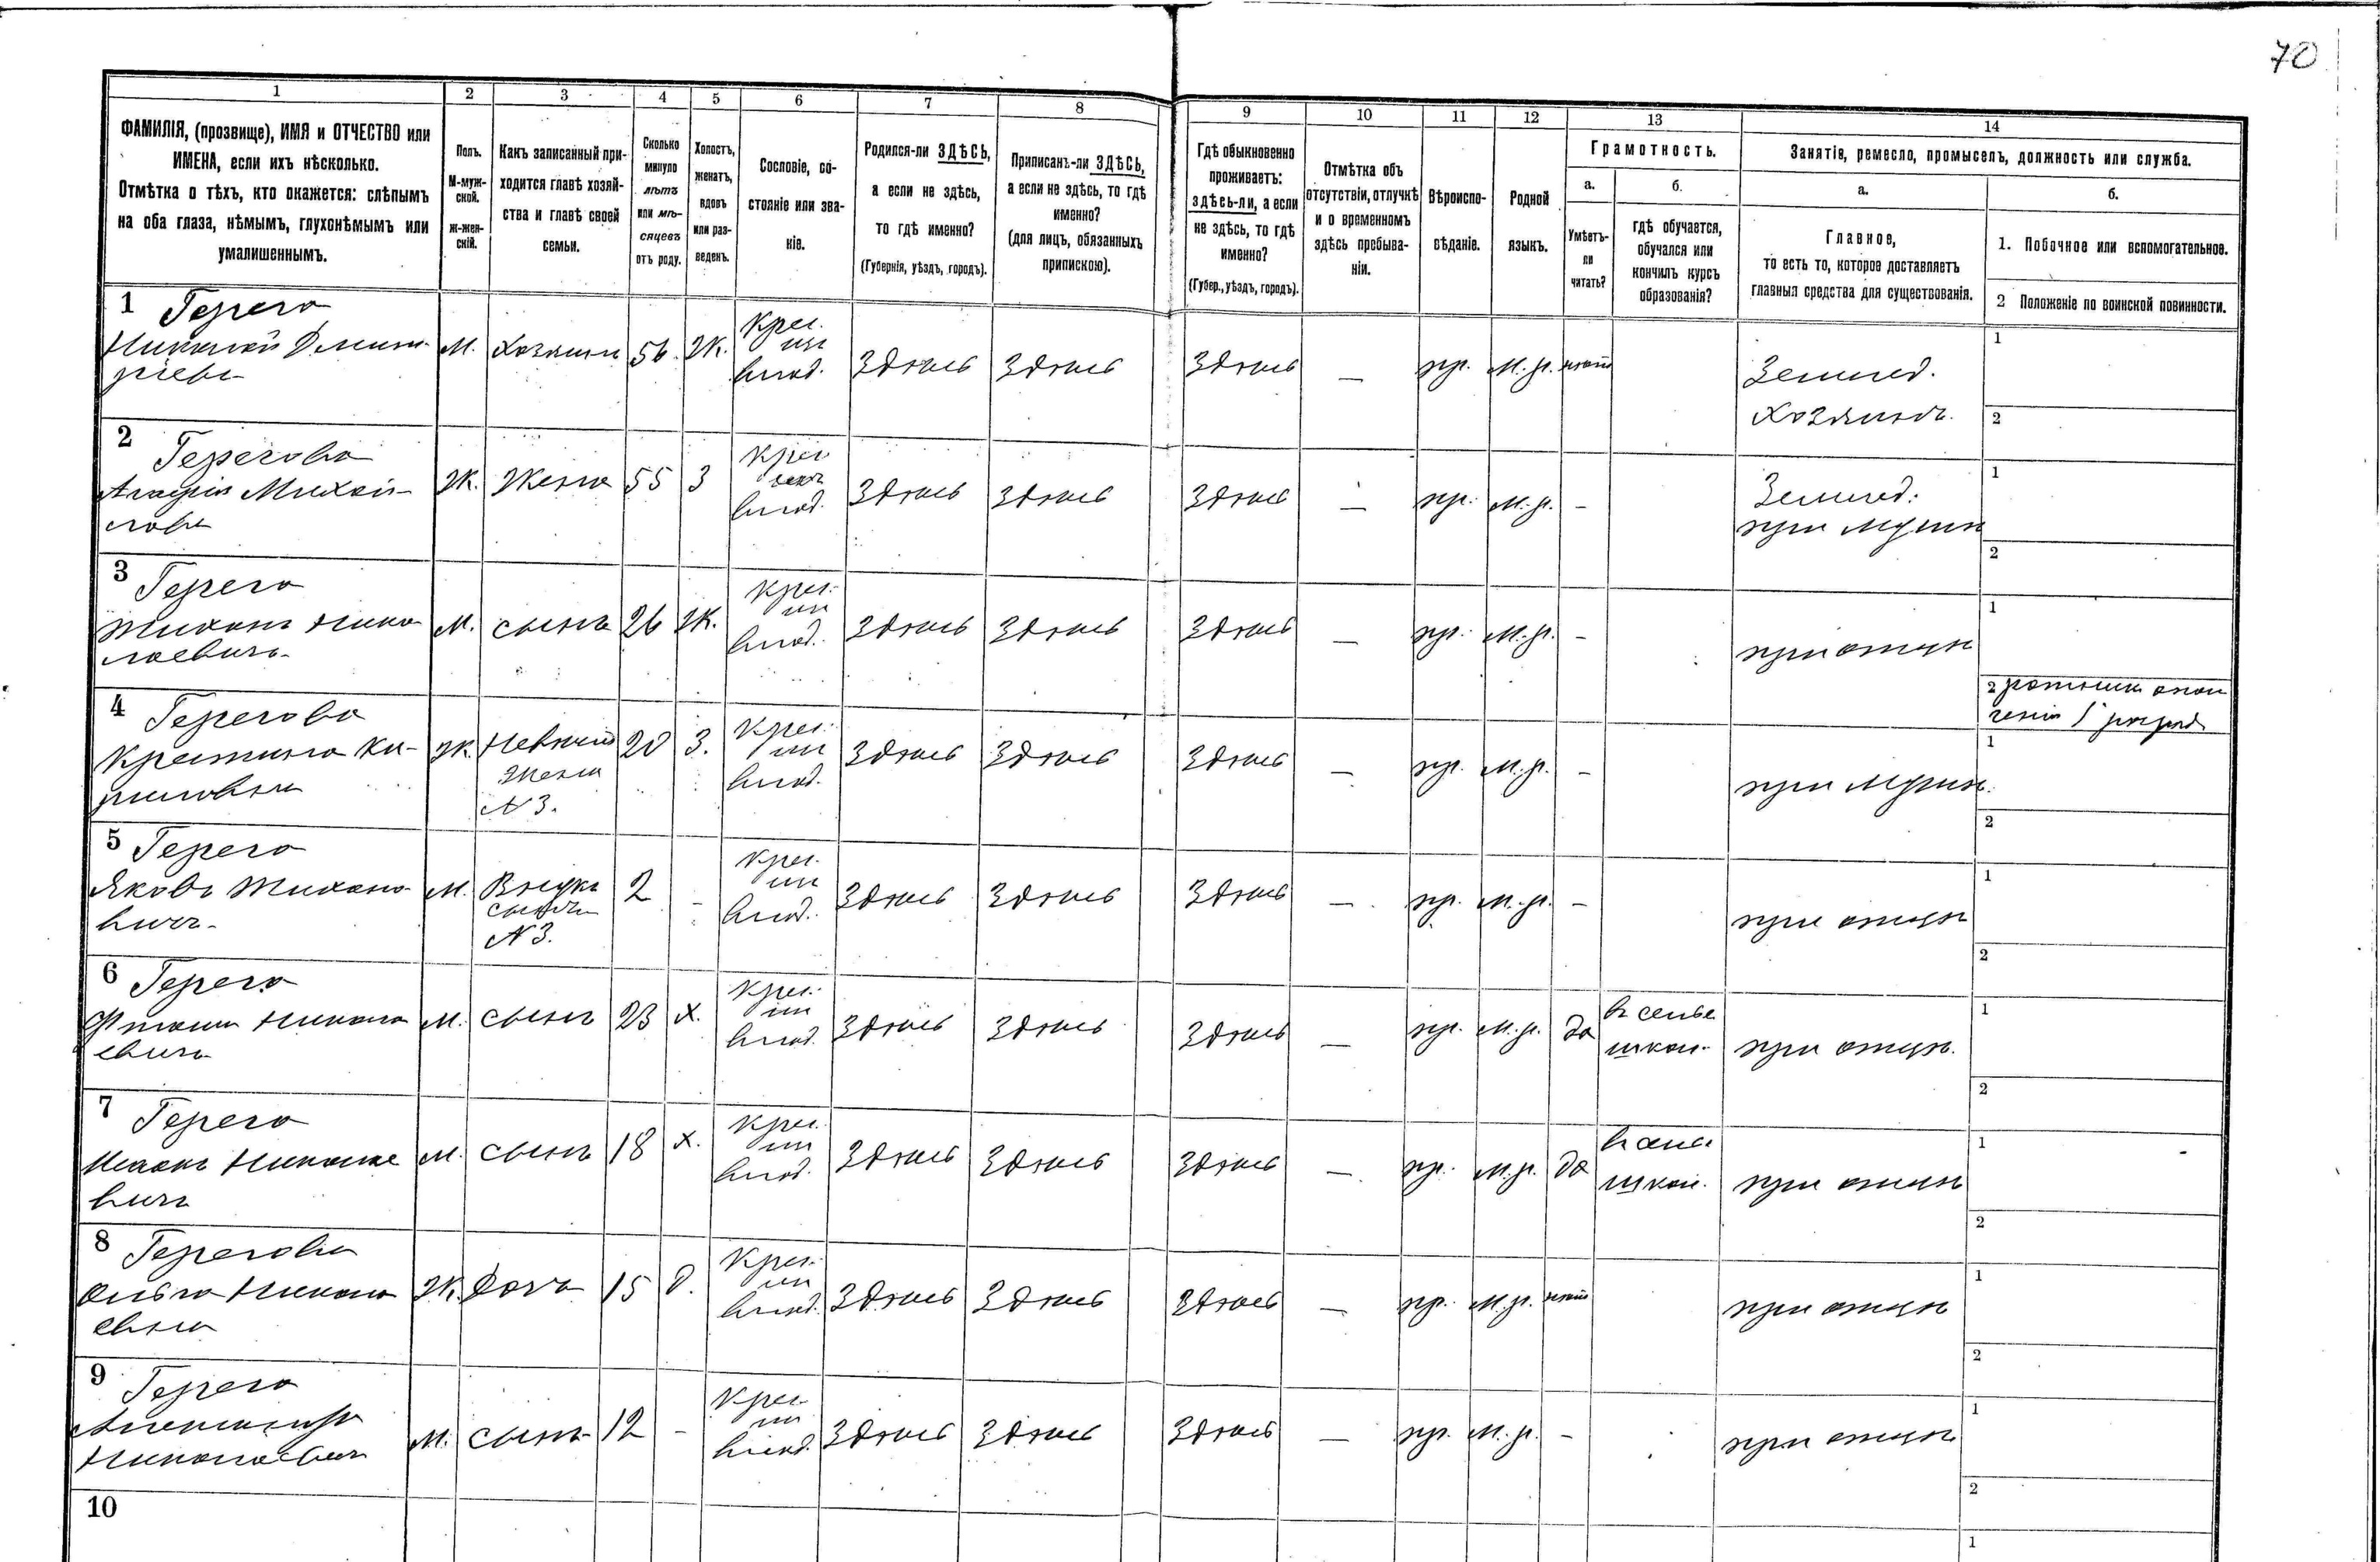 70
1
2
3
4
5
6
7
8
9
10
11
12
13
14
ФАМИЛІЯ, (прозвище), ИМЯ и ОТЧЕСТВО или
ИМЕНА, если ихъ нѣсколько.
Отмѣтка о тѣхъ, кто окажется: слѣпымъ
на оба глаза, нѣмымъ, глухонѣмымъ или
умалишеннымъ.
Полъ.
М-муж-
ской.
ж-жен-
скій.
Какъ записанный при-
ходится главѣ хозяй-
ства и главѣ своей
семьи.
Сколько
минуло
лѣтъ
или мѣ-
сяцевъ
отъ роду.
Холостъ,
женатъ,
вдовъ
или раз-
веденъ.
Сословіе, со-
стояніе или зва-
ніе.
Родился-ли ЗДѢСЬ,
а если не здѣсь,
то гдѣ именно?
(Губернія, уѣздъ, городъ).
Приписанъ-ли ЗДѢСЬ,
а если не здѣсь, то гдѣ
именно?
(для лицъ, обязанныхъ
припискою).
Гдѣ обыкновенно
проживаетъ:
здѣсь-ли, а если
не здѣсь, то гдѣ
именно?
(Губер., уѣздъ, городъ).
Отмѣтка объ
отсутствіи, отлучкѣ
и о временномъ
здѣсь пребыва-
ніи.
Вѣроиспо-
вѣданіе.
Родной
языкъ.
Грамотность.
а.
Умѣетъ-
ли
читать?
б.
гдѣ обучается,
обучался или
кончилъ курсъ
образованія?
Занятія, ремесло, промыселъ, должность или служба.
а.
Главное,
то есть то, которое доставляетъ
главныя средства для существованія.
б.
1. Побочное или вспомогательное.
2 Положеніе по воинской повинности.
1 Герего
Николай Дмит-
ріевъ
М. Хозяинъ 56 Ж. Крес. влад. Здѣсь Здѣсь Здѣсь — пр. М.р. нѣтъ Землед.
хозяинъ
1
2
2 Герегова
Михай-
лова
Ж. Жена 55 З Крес влад. Здѣсь Здѣсь Здѣсь — пр. М.р. – Землед.
при мужѣ
1
2
3 Герего
Тихонъ Нико
лаевичъ
М. сынъ 26 Ж. Крес. влад. Здѣсь Здѣсь Здѣсь — пр. М.р. – при отцѣ
1
2 ратникъ опол
ченія 1 разряд
4 Герегова
Ки-
риловна
Ж. Невѣстк 20 З. Крес. влад. Здѣсь Здѣсь Здѣсь — пр. М.р. – при мужѣ.
жена
N 3.
1
2
5 Герего
Яковъ Тихоно
вичъ
М. Внукъ 2 - Крес. влад. Здѣсь Здѣсь Здѣсь — пр. М.р. – при отцѣ
сынъ
N 3.
1
2
6 Герего
Никола
евичъ
М. сынъ 23 Х. Крес. влад. Здѣсь Здѣсь Здѣсь — пр. М.р. да в сельс
школ. при отцѣ.
1
2
7 Герего
Николае
вичъ
М. сынъ 18 Х. Крес. влад. Здѣсь Здѣсь Здѣсь — пр. М.р. да
школ. при отцѣ
1
2
8 Герегова
Ольга Никола
евна
Ж. Дочь 15 Д. Крес. влад. Здѣсь Здѣсь Здѣсь — пр. М.р. нѣтъ при отцѣ
1
2
9 Герего
Александр
Николаевич
М. сынъ 12 - Крес влад. Здѣсь Здѣсь Здѣсь — пр. М.р. – при отцѣ
1
2
10
1